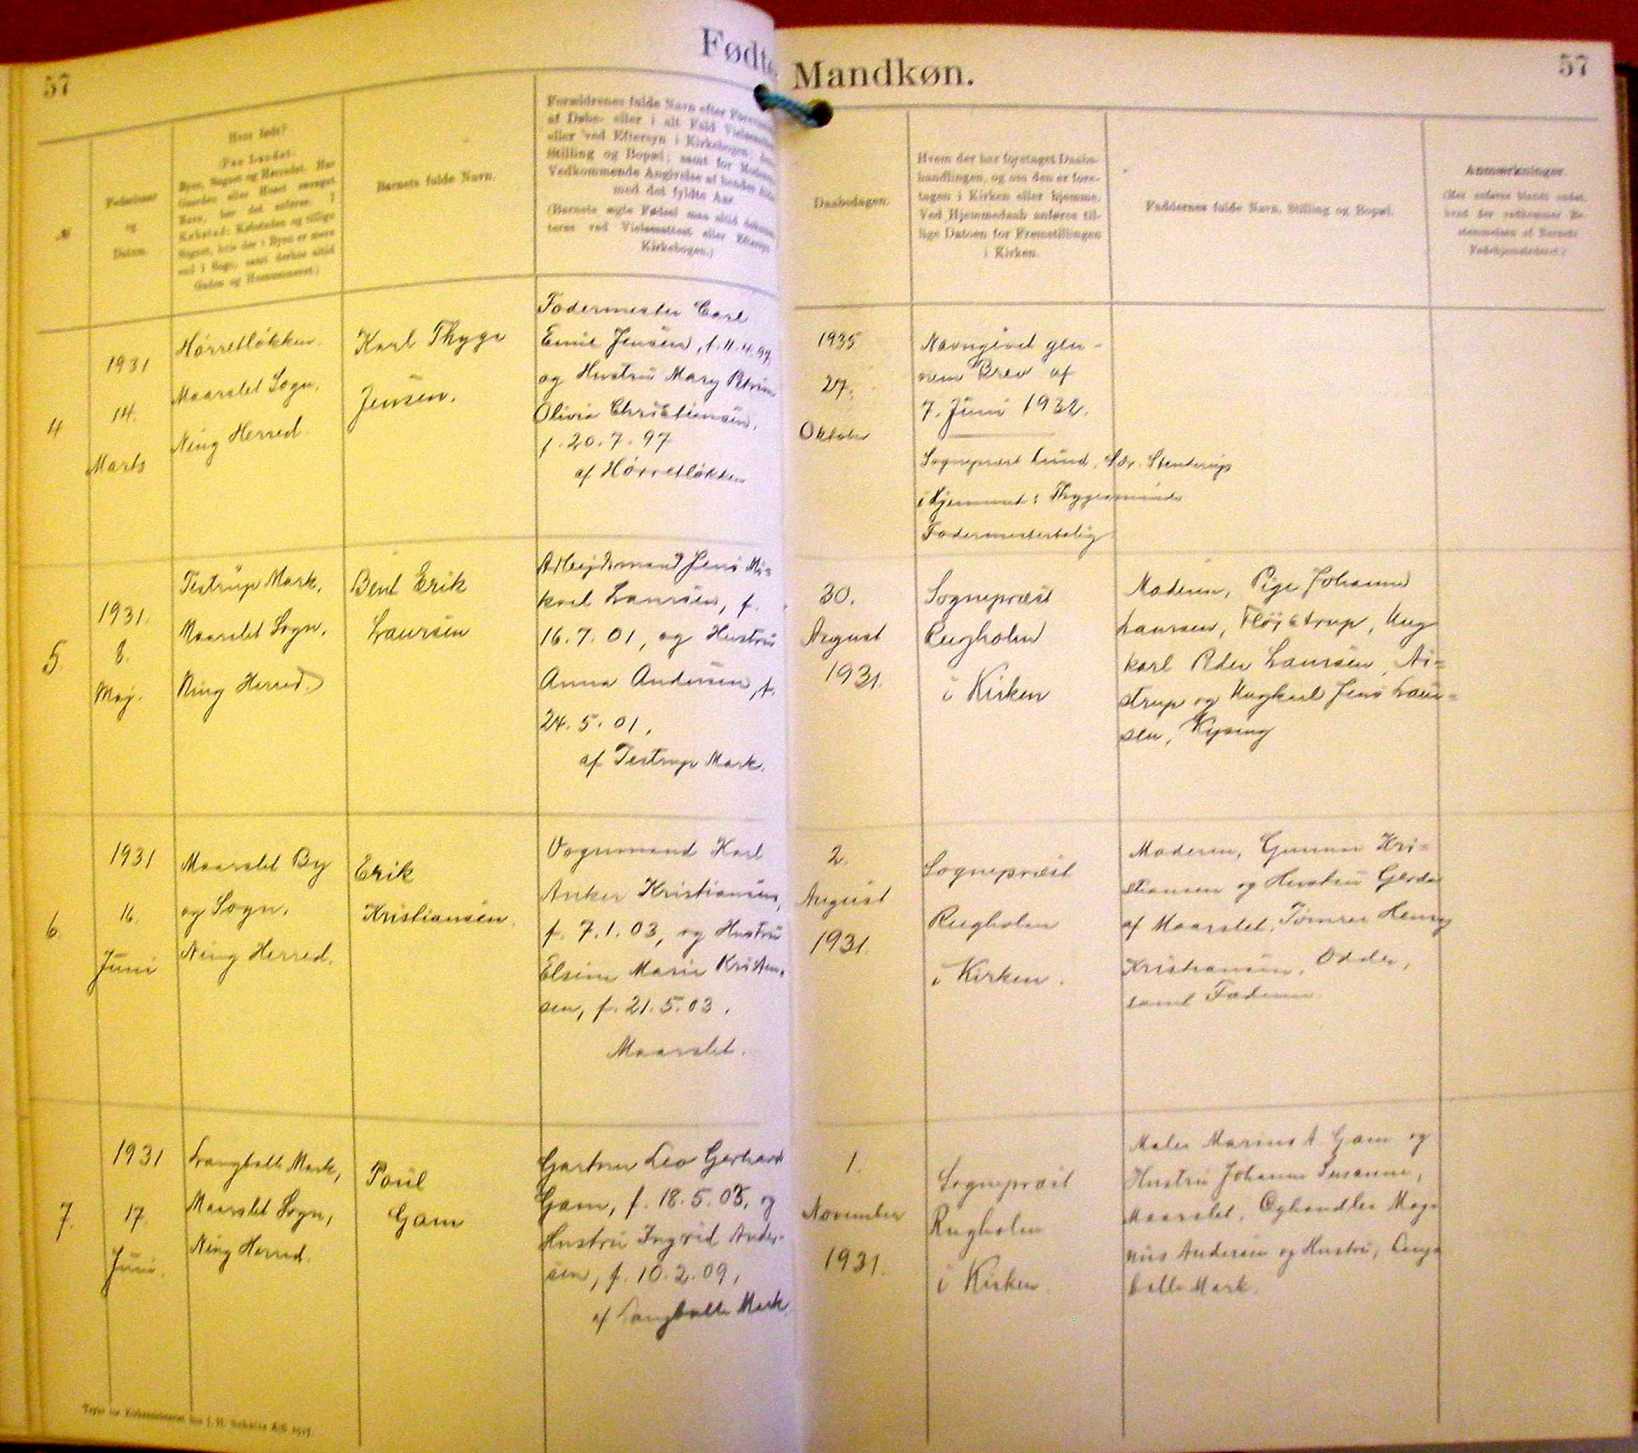 57
Fødte
Mandkøn.
57
№
Fødselsaar
og
Datum.
Hvor født?
(Paa Landet:
Byen, Sognet og Herredet. Har
Gaarden eller Huset særeget
Navn, bør det anføres. I
Købstad: Købstaden og tillige
Sognet, hvis der i Byen er mere
end 1 Sogn, samt derhos altid
Gaden og Husnummeret.)
Barnets fulde Navn.
Forældrenes fulde Navn efter
af Døbe- eller i alt Fald
eller ved Eftersyn i Kirkebogen;
Stilling og Bopæl; samt for
Vedkommende Angivelse af hendes
med det fyldte Aar.
(Barnets ægte Fødsel maa altid
teres ved Vielsesattest eller
Kirkebogen.)
Daabsdagen.
Hvem der har foretaget Daabs-
handlingen, og om den er fore-
tagen i Kirken eller hjemme.
Ved Hjemmedaab anføres til-
lige Datoen for Fremstillingen
i Kirken.
Faddernes fulde Navn, Stilling og Bopæl.
Anmærkninger.
(Her anføres blandt andet,
hvad der vedkommer Be-
stemmelsen af Barnets
Fødehjemsteds
4
1931
14.
Marts
Hørretløkken.
Maarslet Sogn.
Ning Herred.
Karl Thyge
Jensen.
Fodermester Carl
Emil Jensen, f. 11.4.97,
og Hustru Mary Petrine
Olivia Christiansen,
f. 20.7.97
af Hørretløkken
1935
27.
Oktober
Navngivet gen-
nem Brev af
7. Juni 1932.
Sognepræst Lund, Sdr. Stenderup
i Hjemmet: Thygesminde
Fodermesterbolig
5
1931.
8.
Maj.
Testrup Mark,
Maarslet Sogn.
Ning Herred.
Bent Erik
Laursen
Arbejdsmand Jens Mi-
kael Laursen, f.
16.7.01, og Hustru
Anna Andersen, f.
24.5.01,
af Testrup Mark.
30.
August
1931.
Sognepræst
Rugholm
i Kirken
Moderen, Pige Johanne
Laursen, Fløjstrup, Ung
karl Peder Laursen, As-
strup og Ungkarl Jens Laur-
sen, Kysing
6
1931
16.
Juni
Maarslet By
og Sogn.
Ning Herred.
Erik
Kristiansen.
Vognmand Karl
Anker Kristiansen,
f. 7.1.03, og Hustru
Elsine Marie Kristen-
sen, f. 21.5.03.
Maarslet.
2.
August
1931.
Sognepræst
Rugholm
i Kirken.
Moderen, Gunnar Kri-
stiansen og Hustru Gerda
af Maarslet, Tømrer Henry
Kristiansen, Odder,
samt Faderen.
7.
1931
17.
Juni.
Langballe Mark,
Maarslet Sogn,
Ning Herred.
Poul
Gam
Gartner Leo Gerhard
Gam, f. 18.5.03, og
Hustru Ingrid Ander-
sen, f. 10.2.09,
af Langballe Mark.
1.
November
1931.
Sognepræst
Rugholm
i Kirken.
Maler Marius A. Gam og
Hustru Johanne Susanne,
Maarslet. Cyhandler Mag-
nus Andersen og Hustru, Lang-
balle Mark.